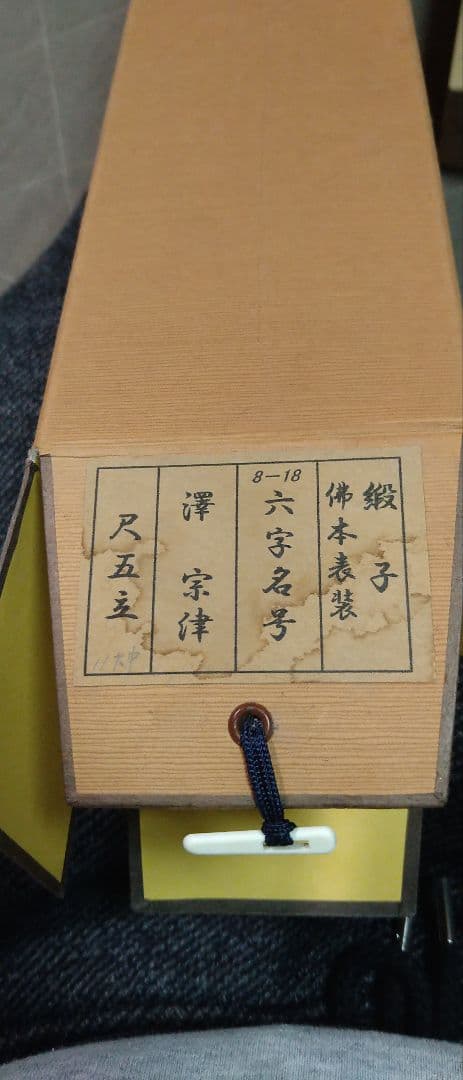 緞子
佛本表装
8-18
六字名号
澤 宗津
尺五立